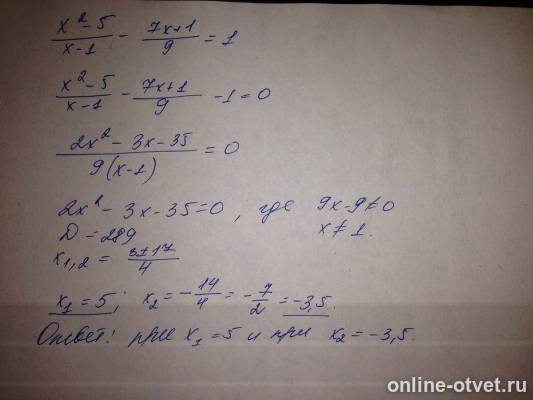 x² - 5 / x - 1 - 7x + 1 / 9 = 1
x² - 5 / x - 1 - 7x + 1 / 9 - 1 = 0
2x² - 3x - 35 / 9(x - 1) = 0
2x² - 3x - 35 = 0, где 9x - 9 ≠ 0
D = 289 x ≠ 1.
x₁,₂ = 3 ± 17 / 4
x₁ = 5; x₂ = - 14 / 4 = - 7 / 2 = -3,5.
Ответ: при x₁ = 5 и при x₂ = -3,5.
online-otvet.ru